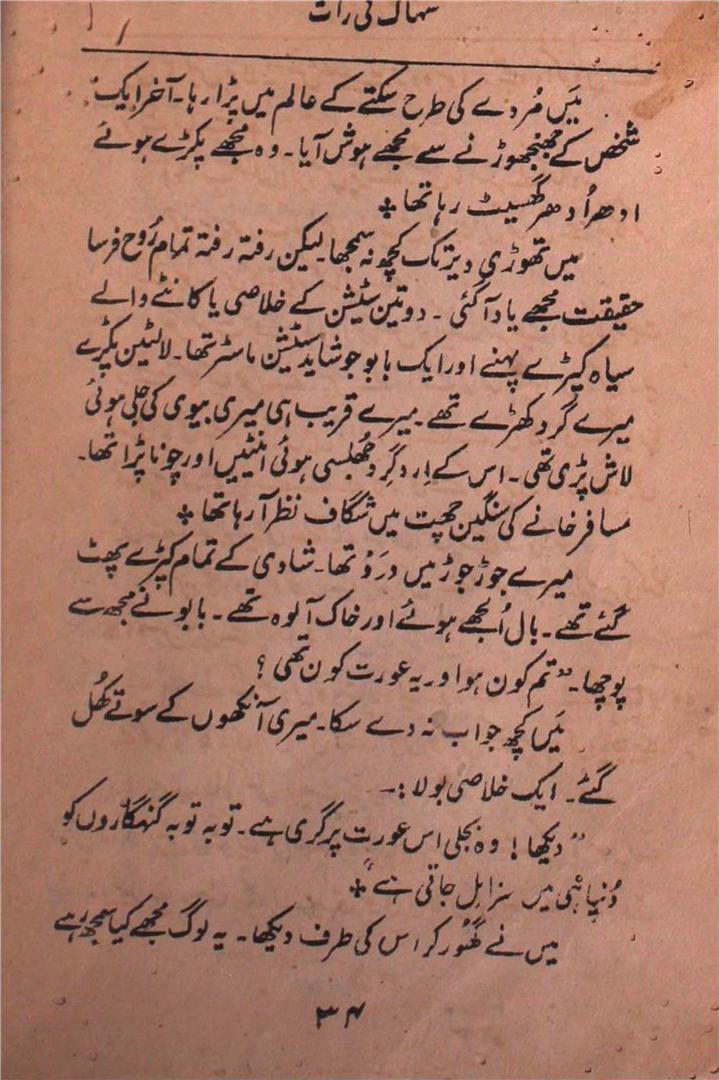 سہاگ کی رات
میں مُردے کی طرح سکتے کے عالم میں پڑا رہا۔ آخر ایک
شخص کے جھنجھوڑنے سے مجھے ہوش آیا۔ وہ مجھے پکڑے ہوئے
ادھر اُدھر گھسیٹ رہا تھا ٭
میں تھوڑی دیر تک کچھ نہ سمجھا۔ لیکن رفتہ رفتہ تمام رُوح فرسا
حقیقت مجھے یاد آگئی ۔ دو تین سٹیشن کے خلاصی یا کانٹے والے
سیاہ کپڑے پہنے اور ایک بابو جو شاید سٹیشن ماسٹر تھا۔ لالٹین پکڑے
میرے گرد کھڑے تھے۔ میرے قریب ہی میری بیوی کی جلی ہوئی
لاش پڑی تھی۔ اس کے اِرد گِرد جھُلسی ہوئی انٹیں اور چونا پڑا تھا۔
مسافر خانے کی سنگین چھت میں شگاف نظر آ رہا تھا ٭
میرے جوڑ جوڑ میں درد تھا۔ شادی کے تمام کپڑے پھٹ
گئے تھے۔ بال اُلجھے ہوئے اور خاک آلودہ تھے ۔ بابو نے مجھ سے
پوچھا۔ "تم کون ہو اور یہ عورت کون تھی ؟
میں کچھ جواب نہ دے سکا۔ میری آنکھوں کے سوتے کھُل
گئے۔ ایک خلاصی بولا :۔
"دیکھا! وہ بجلی اس عورت پر گری ہے۔ توبہ توبہ گنہگاروں کو
دُنیا ہی میں سزا مل جاتی ہے" ٭
میں نے گھُور کر اس کی طرف دیکھا۔ یہ لوگ مجھے کیا سمجھ رہے
۳۴